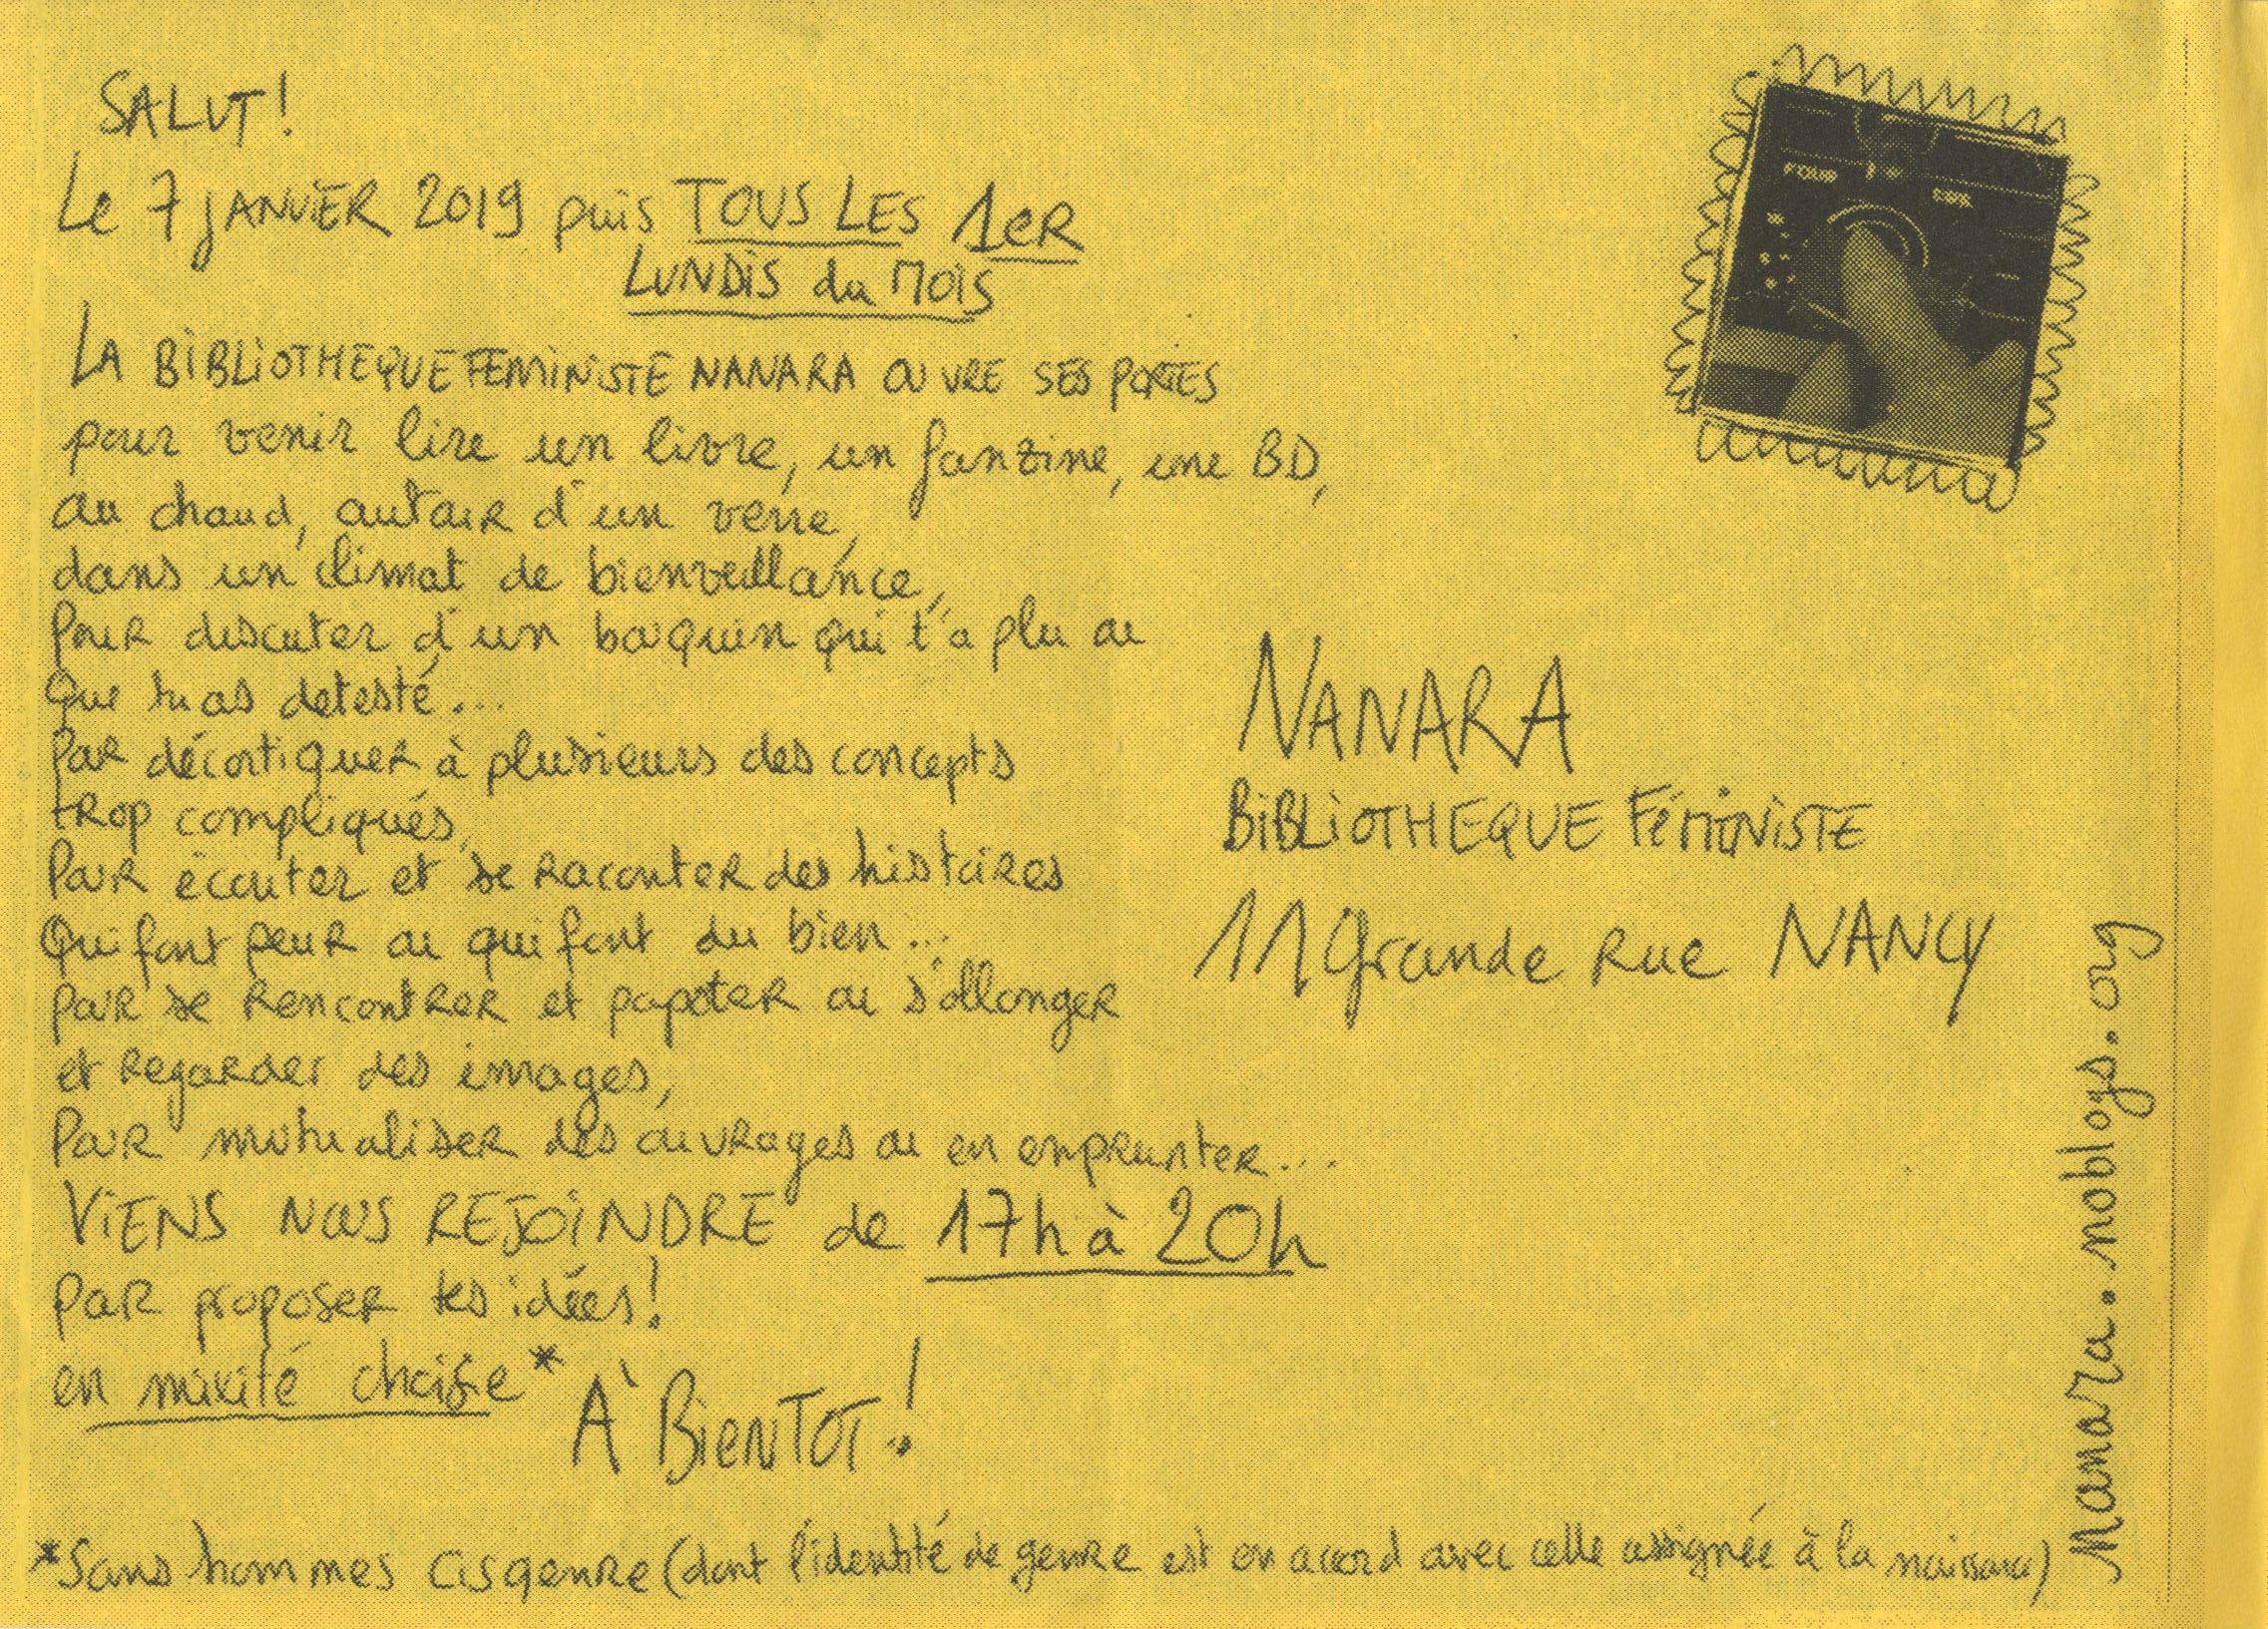 SALUT!
Le 7 JANVIER 2019 puis TOUS LES 1eR
LUNDIS du MOIS
LA BIBLIOTHEQUE FEMINISTE NANARA OUVRE SES PORTES
pour venir lire un livre, un fanzine, une BD,
au chaud, autour d'un verre,
dans un climat de bienveillance,
Pour discuter d'un bouquin qui t'a plu ou
Que tu as detesté...
Pour décortiquer à plusieurs des concepts
trop compliqués,
Pour écouter et se raconter des histoires
Qui font peur ou qui font du bien...
pour se rencontrer et papoter ou s'allonger
et regarder des images,
Pour mutualiser des ouvrages ou en emprunter...
VIENS NOUS REJOINDRE de 17h à 20h
pour proposer tes idées!
en mixité choisie*
À BIENTOT!
*Sans hommes cisgenre (dont l'identité de genre est en accord avec celle assignée à la naissance)
FOUR
NANARA
BIBLIOTHEQUE FéMINISTE
11 Grande Rue NANCY
Nanara.noblogs.org